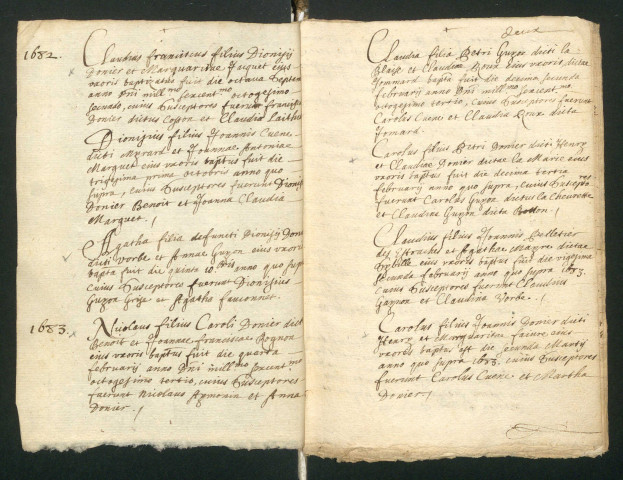 1682.
Claudius franciscus filius Dionisij
Donier et Margaritae Jacquet eius
uxoris baptizatus fuit die octava
anno Dni mill.mo sexcent.mo octogesimo
secundo, cuius susceptores fuerunt
Donier dictus Cosson et Claudia
Dionisius filius Joannis Cuene
dicti et Joannae Antoniae
Marquet eius uxoris baptus fuit die
trigesima prima octobris anno quo
supra, cuius susceptores fuerunt Dionisi
Donier Benoit et Joanna Claudia
Marquet ./
Agatha filia defuncti Dionisij Doni
dicti Vorbe et Annae Guyon eius uxoris
bapta fuit die quinta 10.bris anno quo sup
cuius susceptores fuerunt Dionisius
Guyon Grise et Agatha fauconnet.
1683.
Nicolaus filius Caroli Donier dict
Benoit et Joannae franciscae Rognon
eius uxoris baptus fuit die quarta
februarij anno Dni mill.mo sexcent.mo
octogesimo tertio, cuius susceptores
fuerunt Nicolaus et Anna
Donier ./
deux
Claudia filia Petri Guyon dicti la
Blaise et Claudiae Roux eius uxoris dictae
Jommard bapta fuit die decima secunda
februarij anno Dni mill.mo sexcent.mo
octogesimo tertio, cuius susceptores fuerunt
Carolus Cuene et Claudia Roux dicta
Jomard.
Carolus filius Petri Donier dicti Henry
et Claudiae Donier dictae la Marie eius
uxoris baptus fuit die decima tertia
februarij anno quo supra, cuius susceptores
fuerunt Carolus Guyon dictus la
et Claudia Guyon dicta Bolton ./
Claudius filius Joannis Pelletier
des et Agathae dictae
eius uxoris baptus fuit die vigesima
secunda februarij anno quo supra 1683.
cuius susceptores fuerunt Claudius
Gagnon et Claudina Vorbe ./
Carolus filius Joannis Donier dicti
Henry et Margaritae faivre eius
uxoris baptus est die secunda Martij
anno quo supra 1683. cuius susceptores
fuerunt Carolus Cuene et Martha
Donier ./